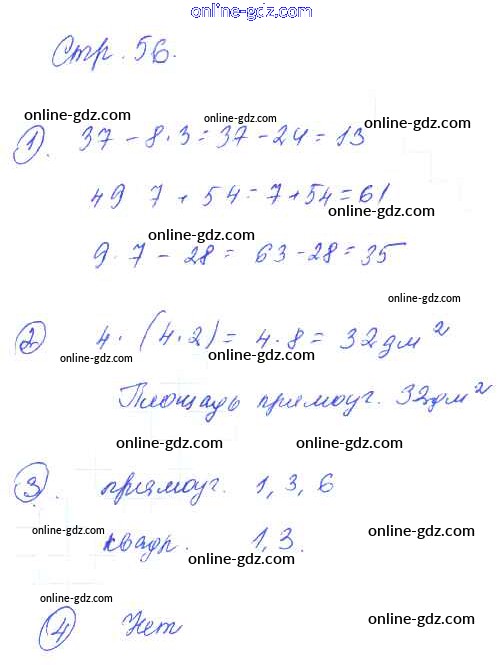 online-gdz.com
Стр. 56.
online-gdz.com online-gdz.com
1). 37 - 8 · 3 = 37 - 24 = 13
online-gdz.com
49 7 + 54 = 7 + 54 = 61
online-gdz.com
online-gdz.com
9 · 7 - 28 = 63 - 28 = 35
online-gdz.com
2) 4 · (4 · 2) = 4 · 8 = 32 дм²
online-gdz.com online-gdz.com online-gdz.com
Площадь прямоуг. 32 дм²
online-gdz.com online-gdz.com
3). прямоуг. 1, 3, 6
online-gdz.com online-gdz.com
квадр. 1, 3.
online-gdz.com
online-gdz.com
4) Нет
online-gdz.com
online-gdz.com